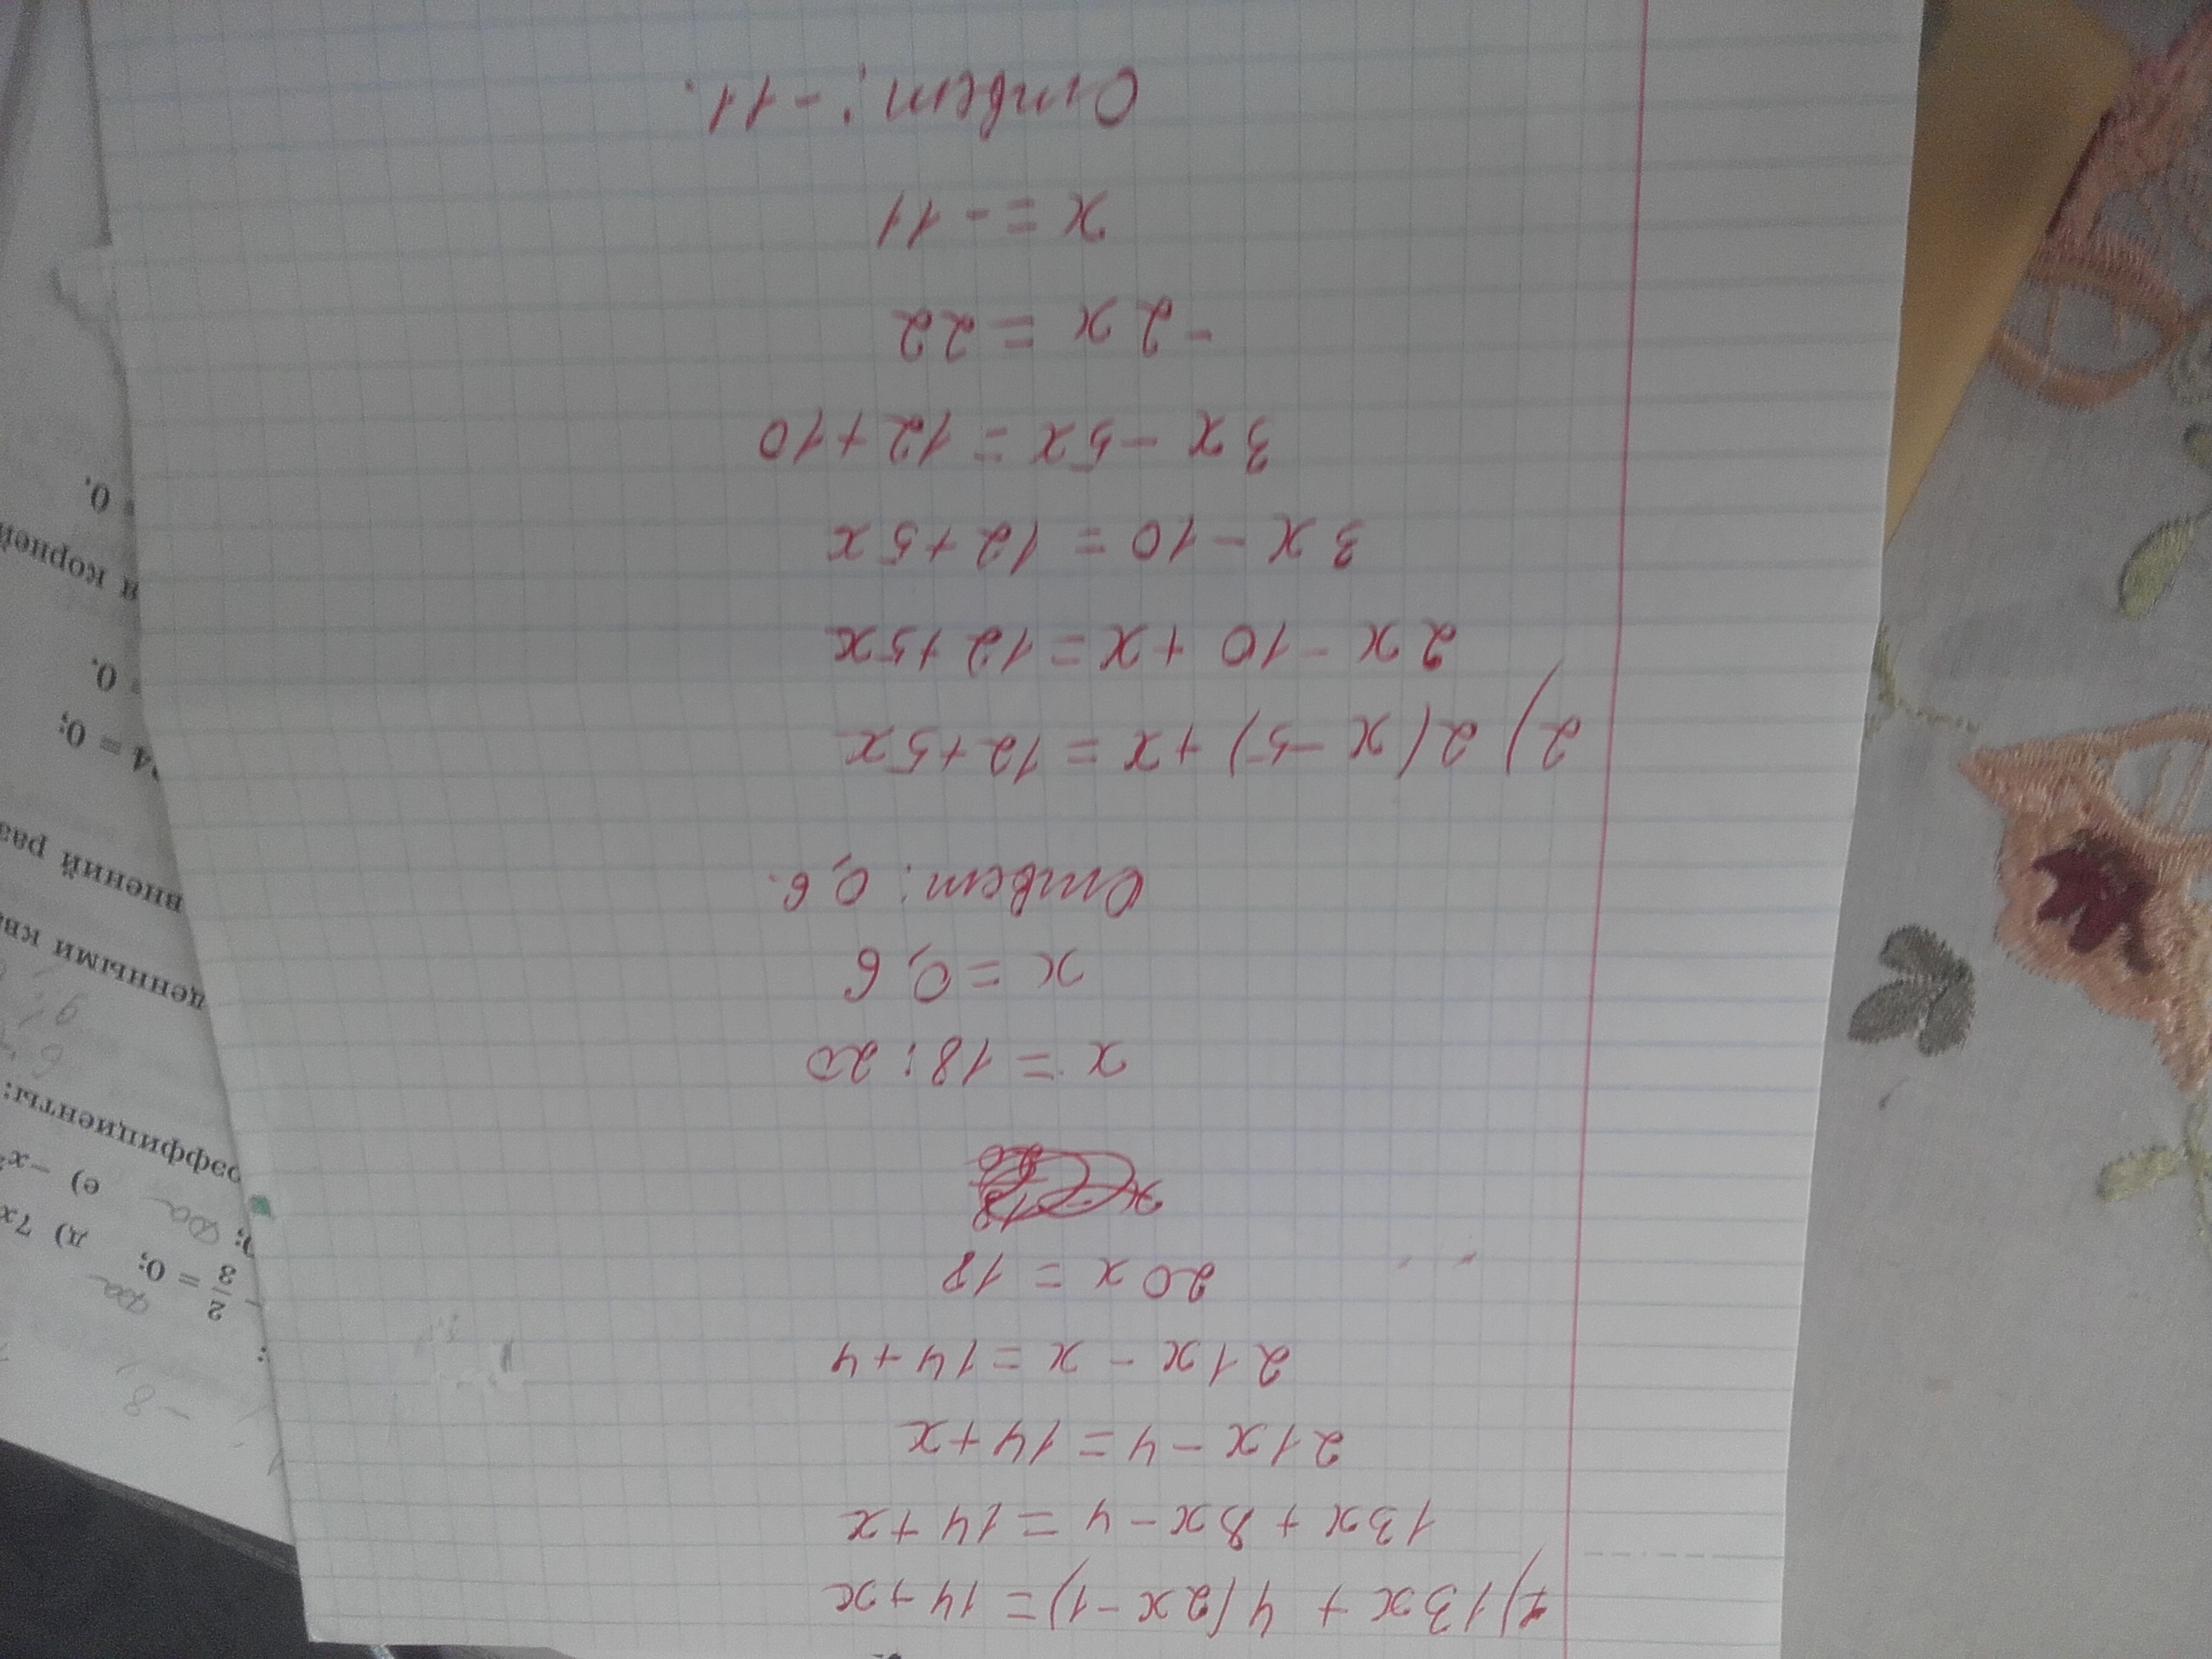 1) 13x + 4(2x-1) = 14+x
13x + 8x - 4 = 14+x
21x - 4 = 14+x
21x - x = 14+4
20x = 18
x = 18:20
x = 0,9
Ответ: 0,9.
2) 2(x-5) + x = 12+5x
2x - 10 + x = 12+5x
3x - 10 = 12+5x
3x - 5x = 12+10
-2x = 22
x = -11
Ответ: -11.
- 8
2/3 = 0; д) 7x
е) -x²
оэффициенты:
ценными ква
внений раз
4 = 0;
= 0.
и корней
= 0.